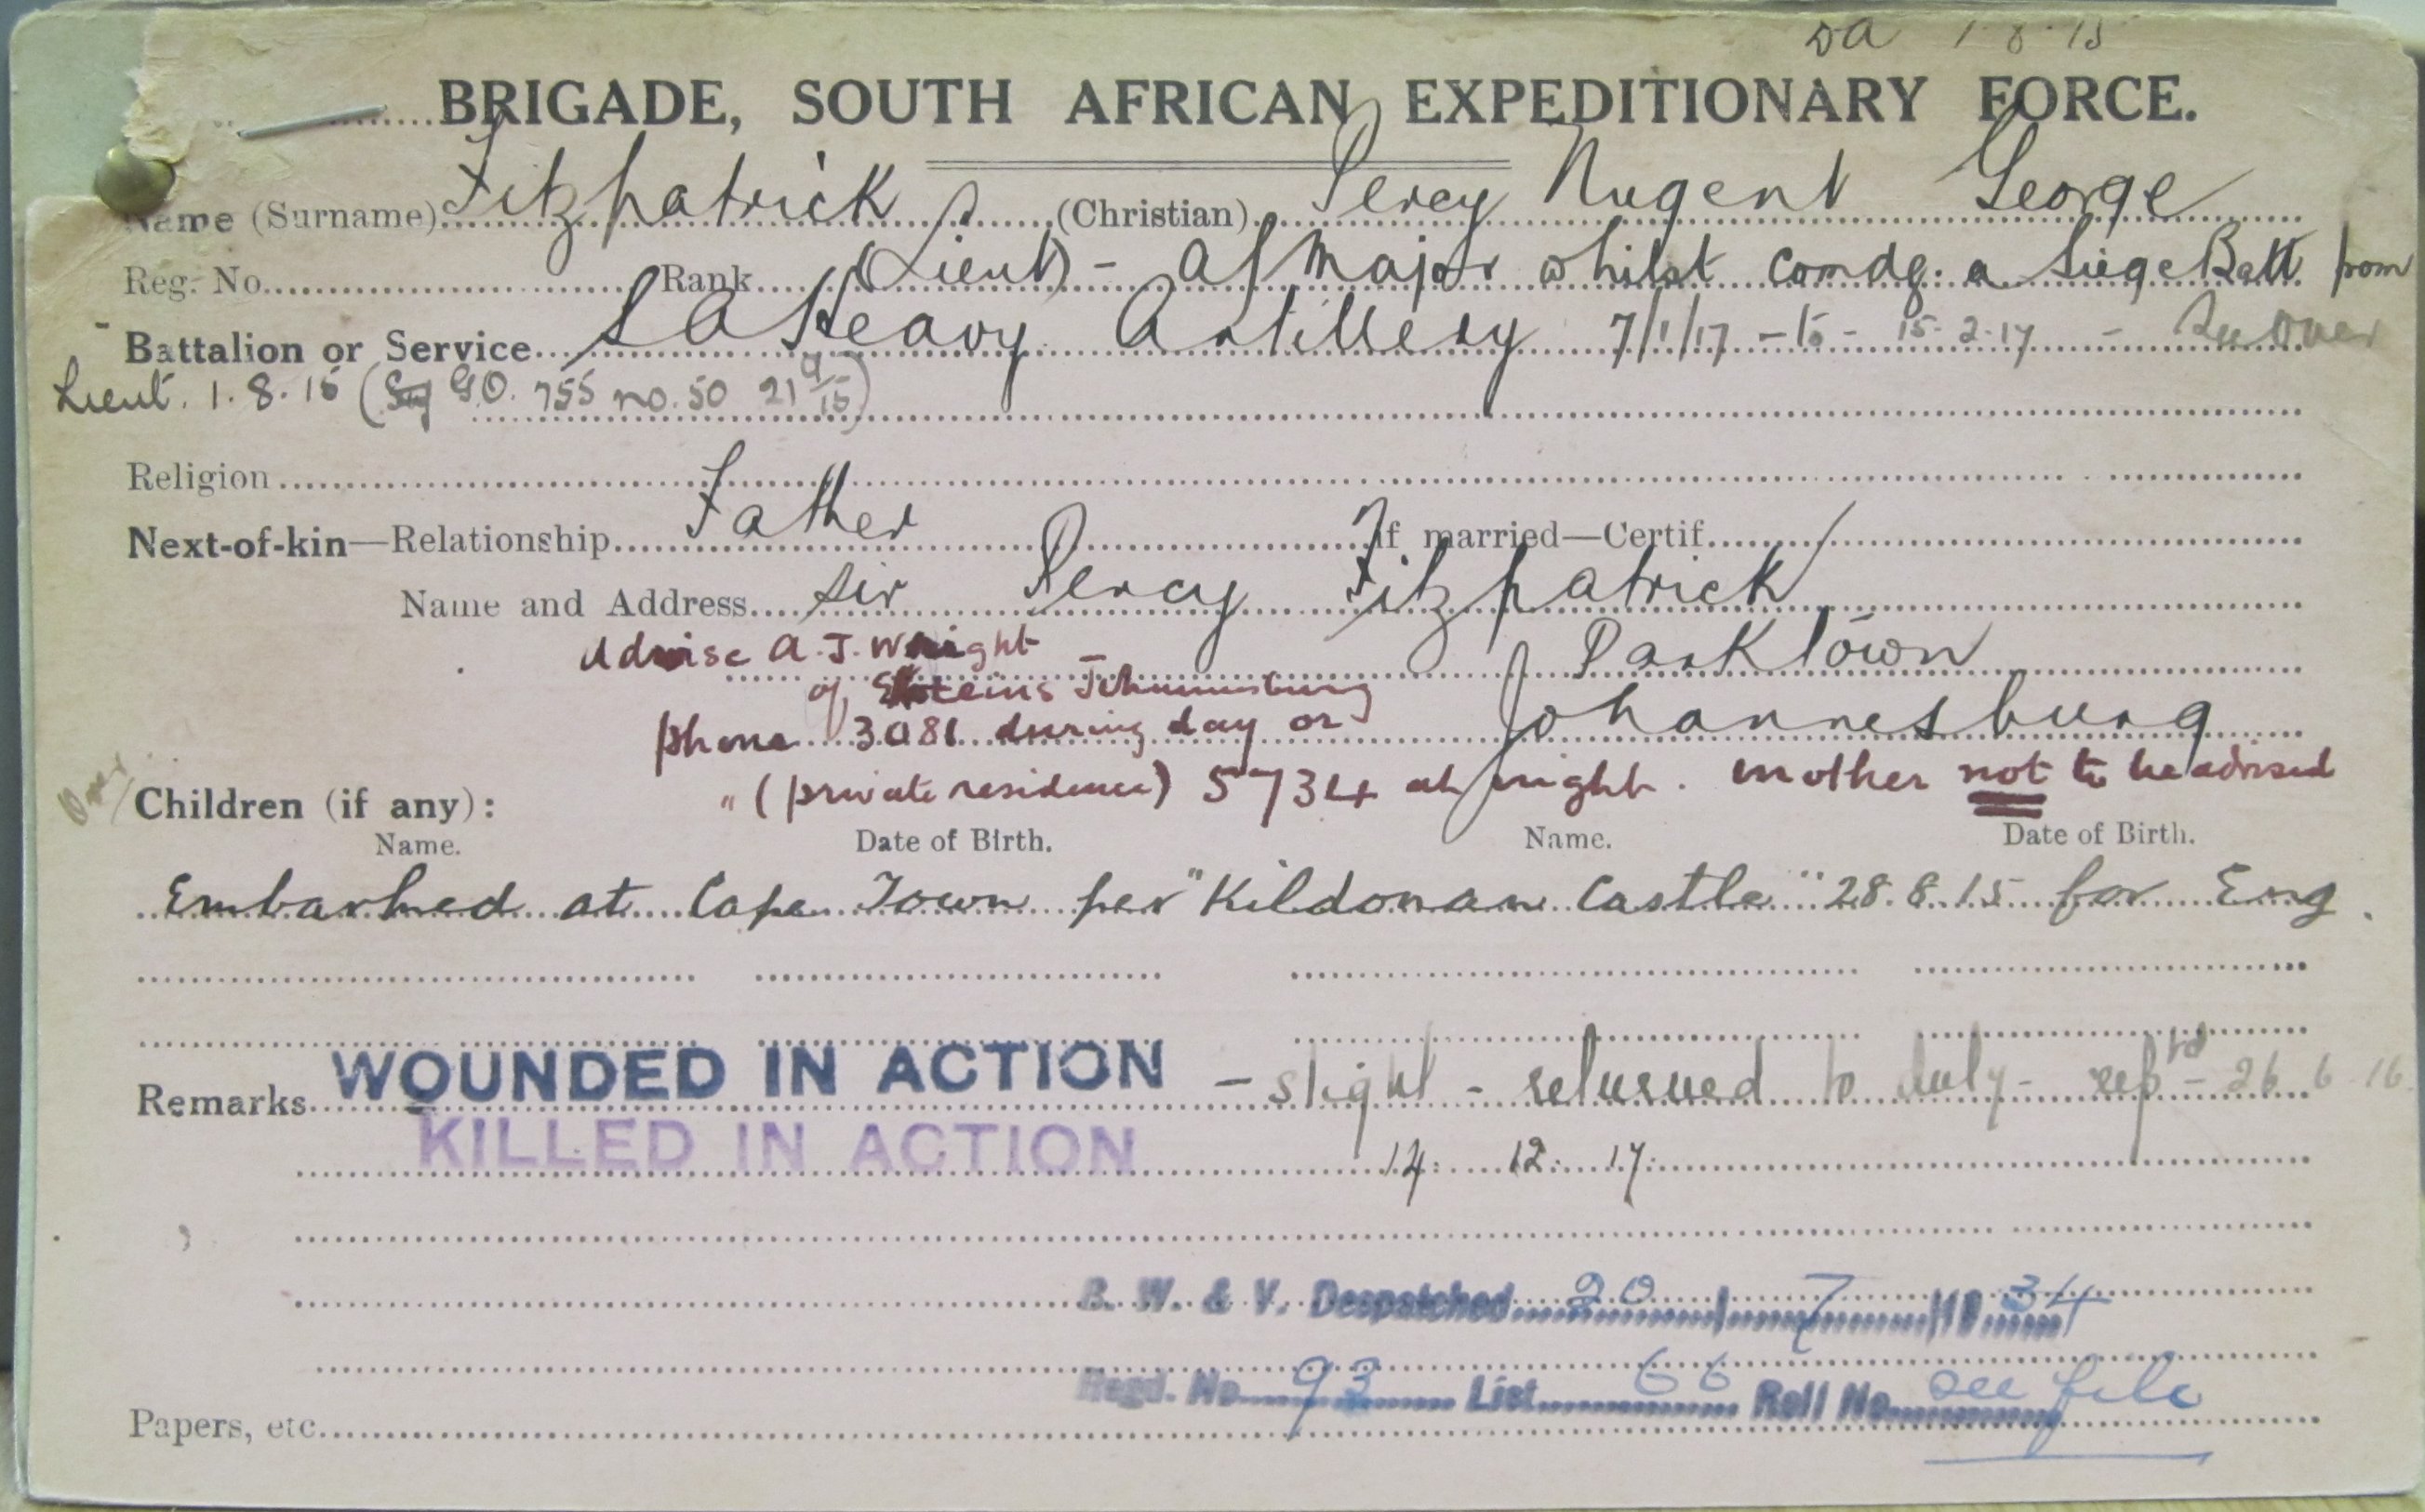 DA 1.8.15
BRIGADE, SOUTH AFRICAN EXPEDITIONARY FORCE.
Name (Surname) Fitzpatrick (Christian) Percy Nugent George
Reg. No. Rank (Lieut) - A/Major whilst comdg. a Siege Batt from
Battalion or Service S A Heavy Artillery 7/1/17 - to - 15-2-17 -
Lieut. 1.8.15 (G.O. 755 no. 50 21 9/15)
Religion
Next-of-kin—Relationship Father If married—Certif. /
Name and Address Sir Percy Fitzpatrick
Advise A.J. Wright Parktown
of Johannesburg
phone 3081 during day or Johannesburg
" (private residence) 5734 at night. Mother not to be advised
Over
Children (if any):
Name. Date of Birth. Name. Date of Birth.
Embarked at Cape Town per "Kildonan Castle" 28.8.15 for Eng.
Remarks WOUNDED IN ACTION - slight - returned to duty - reptd - 26 6 16
KILLED IN ACTION 14. 12. 17.
B. W. & V. Despatched 20/7/1934
Regd. No. 93 List 66 Roll No. see file
Papers, etc.